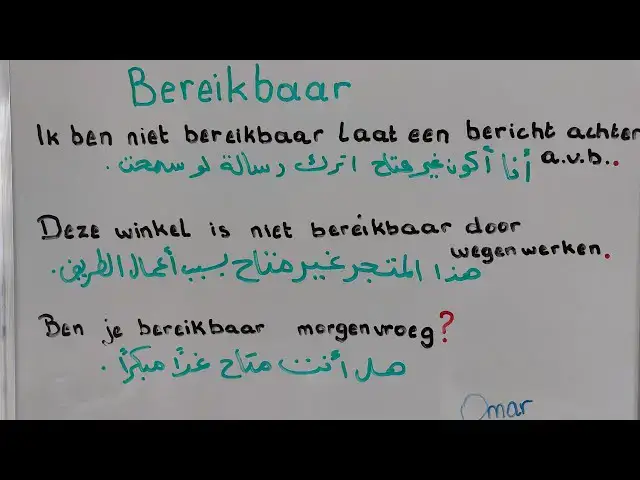 Bereikbaar
Ik ben niet bereikbaar laat een bericht achter
a.v.b..
أنا أكون غير متاح اترك رسالة لو سمحت .
Deze winkel is niet bereikbaar door
wegenwerken.
هذا المتجر غير متاح بسبب أعمال الطريق.
Ben je bereikbaar morgenvroeg?
هل أنت متاح غدًا مبكرًا .
Omar